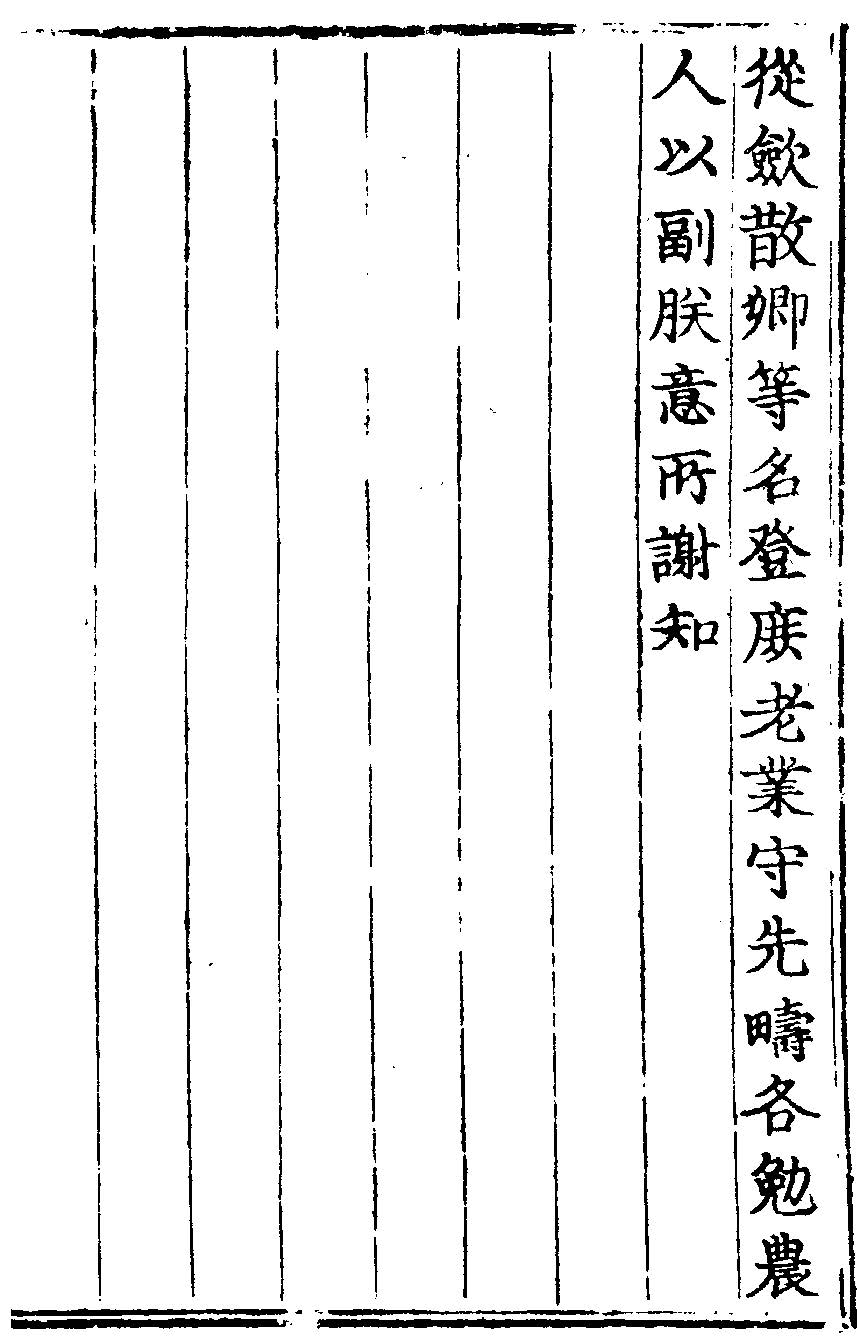 從歛散卿等名登庻老業守先疇各勉農
人以副朕意所謝知